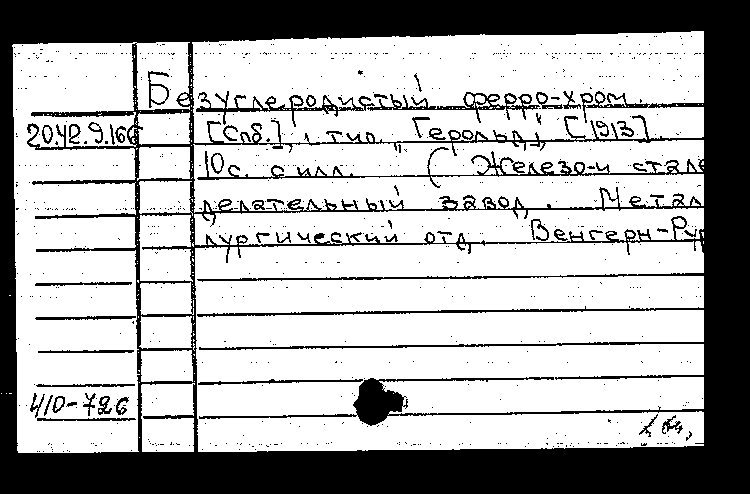 Безуглеродистый ферро-хром.
20.42.9.166 [Спб.], тип. „Герольд", [1913].
10с. с илл. (Железо-и стале
делательный завод. Метал
лургический отд. Венгерн-Рур
410-726